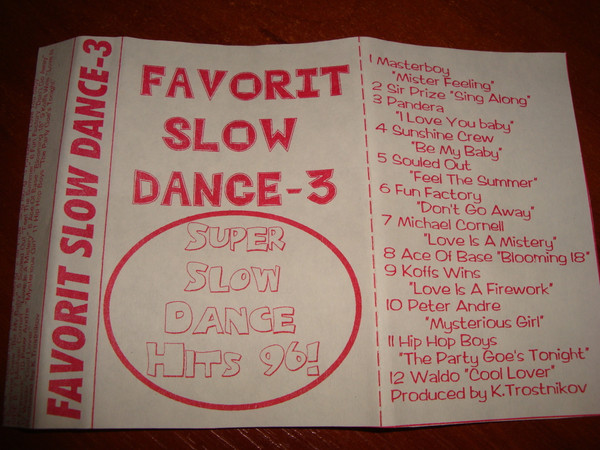 FAVORIT SLOW DANCE-3
FAVORIT
SLOW
DANCE-3
SUPER
SLOW
DANCE
HITS 96!
1 Masterboy
"Mister Feeling"
2 Sir Prize "Sing Along"
3 Pandera
"I Love You baby"
4 Sunshine Crew
"Be My Baby"
5 Souled Out
"Feel The Summer"
6 Fun Factory
"Don't Go Away"
7 Michael Cornell
"Love Is A Mistery"
8 Ace Of Base "Blooming 18"
9 Koffs Wins
"Love Is A Firework"
10 Peter Andre
"Mysterious Girl"
11 Hip Hop Boys
"The Party Goe's Tonight"
12 Waldo "Cool Lover"
Produced by K.Trostnikov